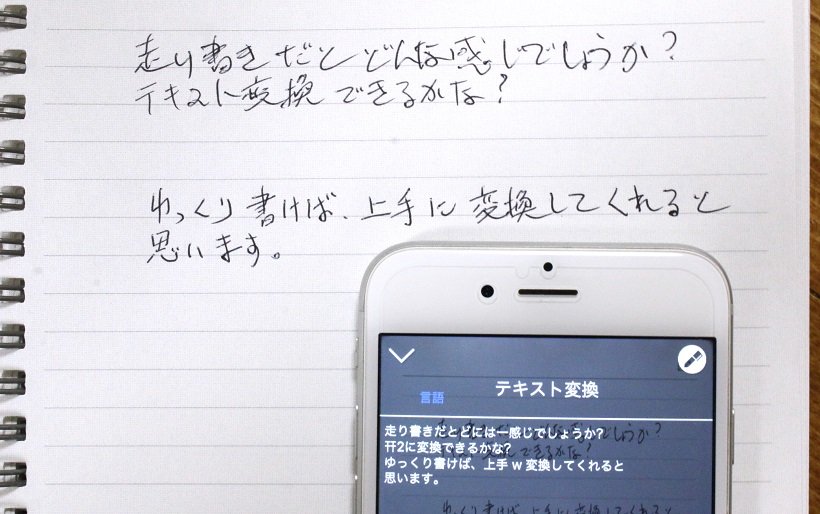 走り書きだとどんな感じでしょうか?
テキスト変換できるかな?
ゆっくり書けば、上手に変換してくれると
思います。
テキスト変換
言語
走り書きだとどには一感じでしょうか?
〒2に変換できるかな?
ゆっくり書けば、上手 w 変換してくれると
思います。